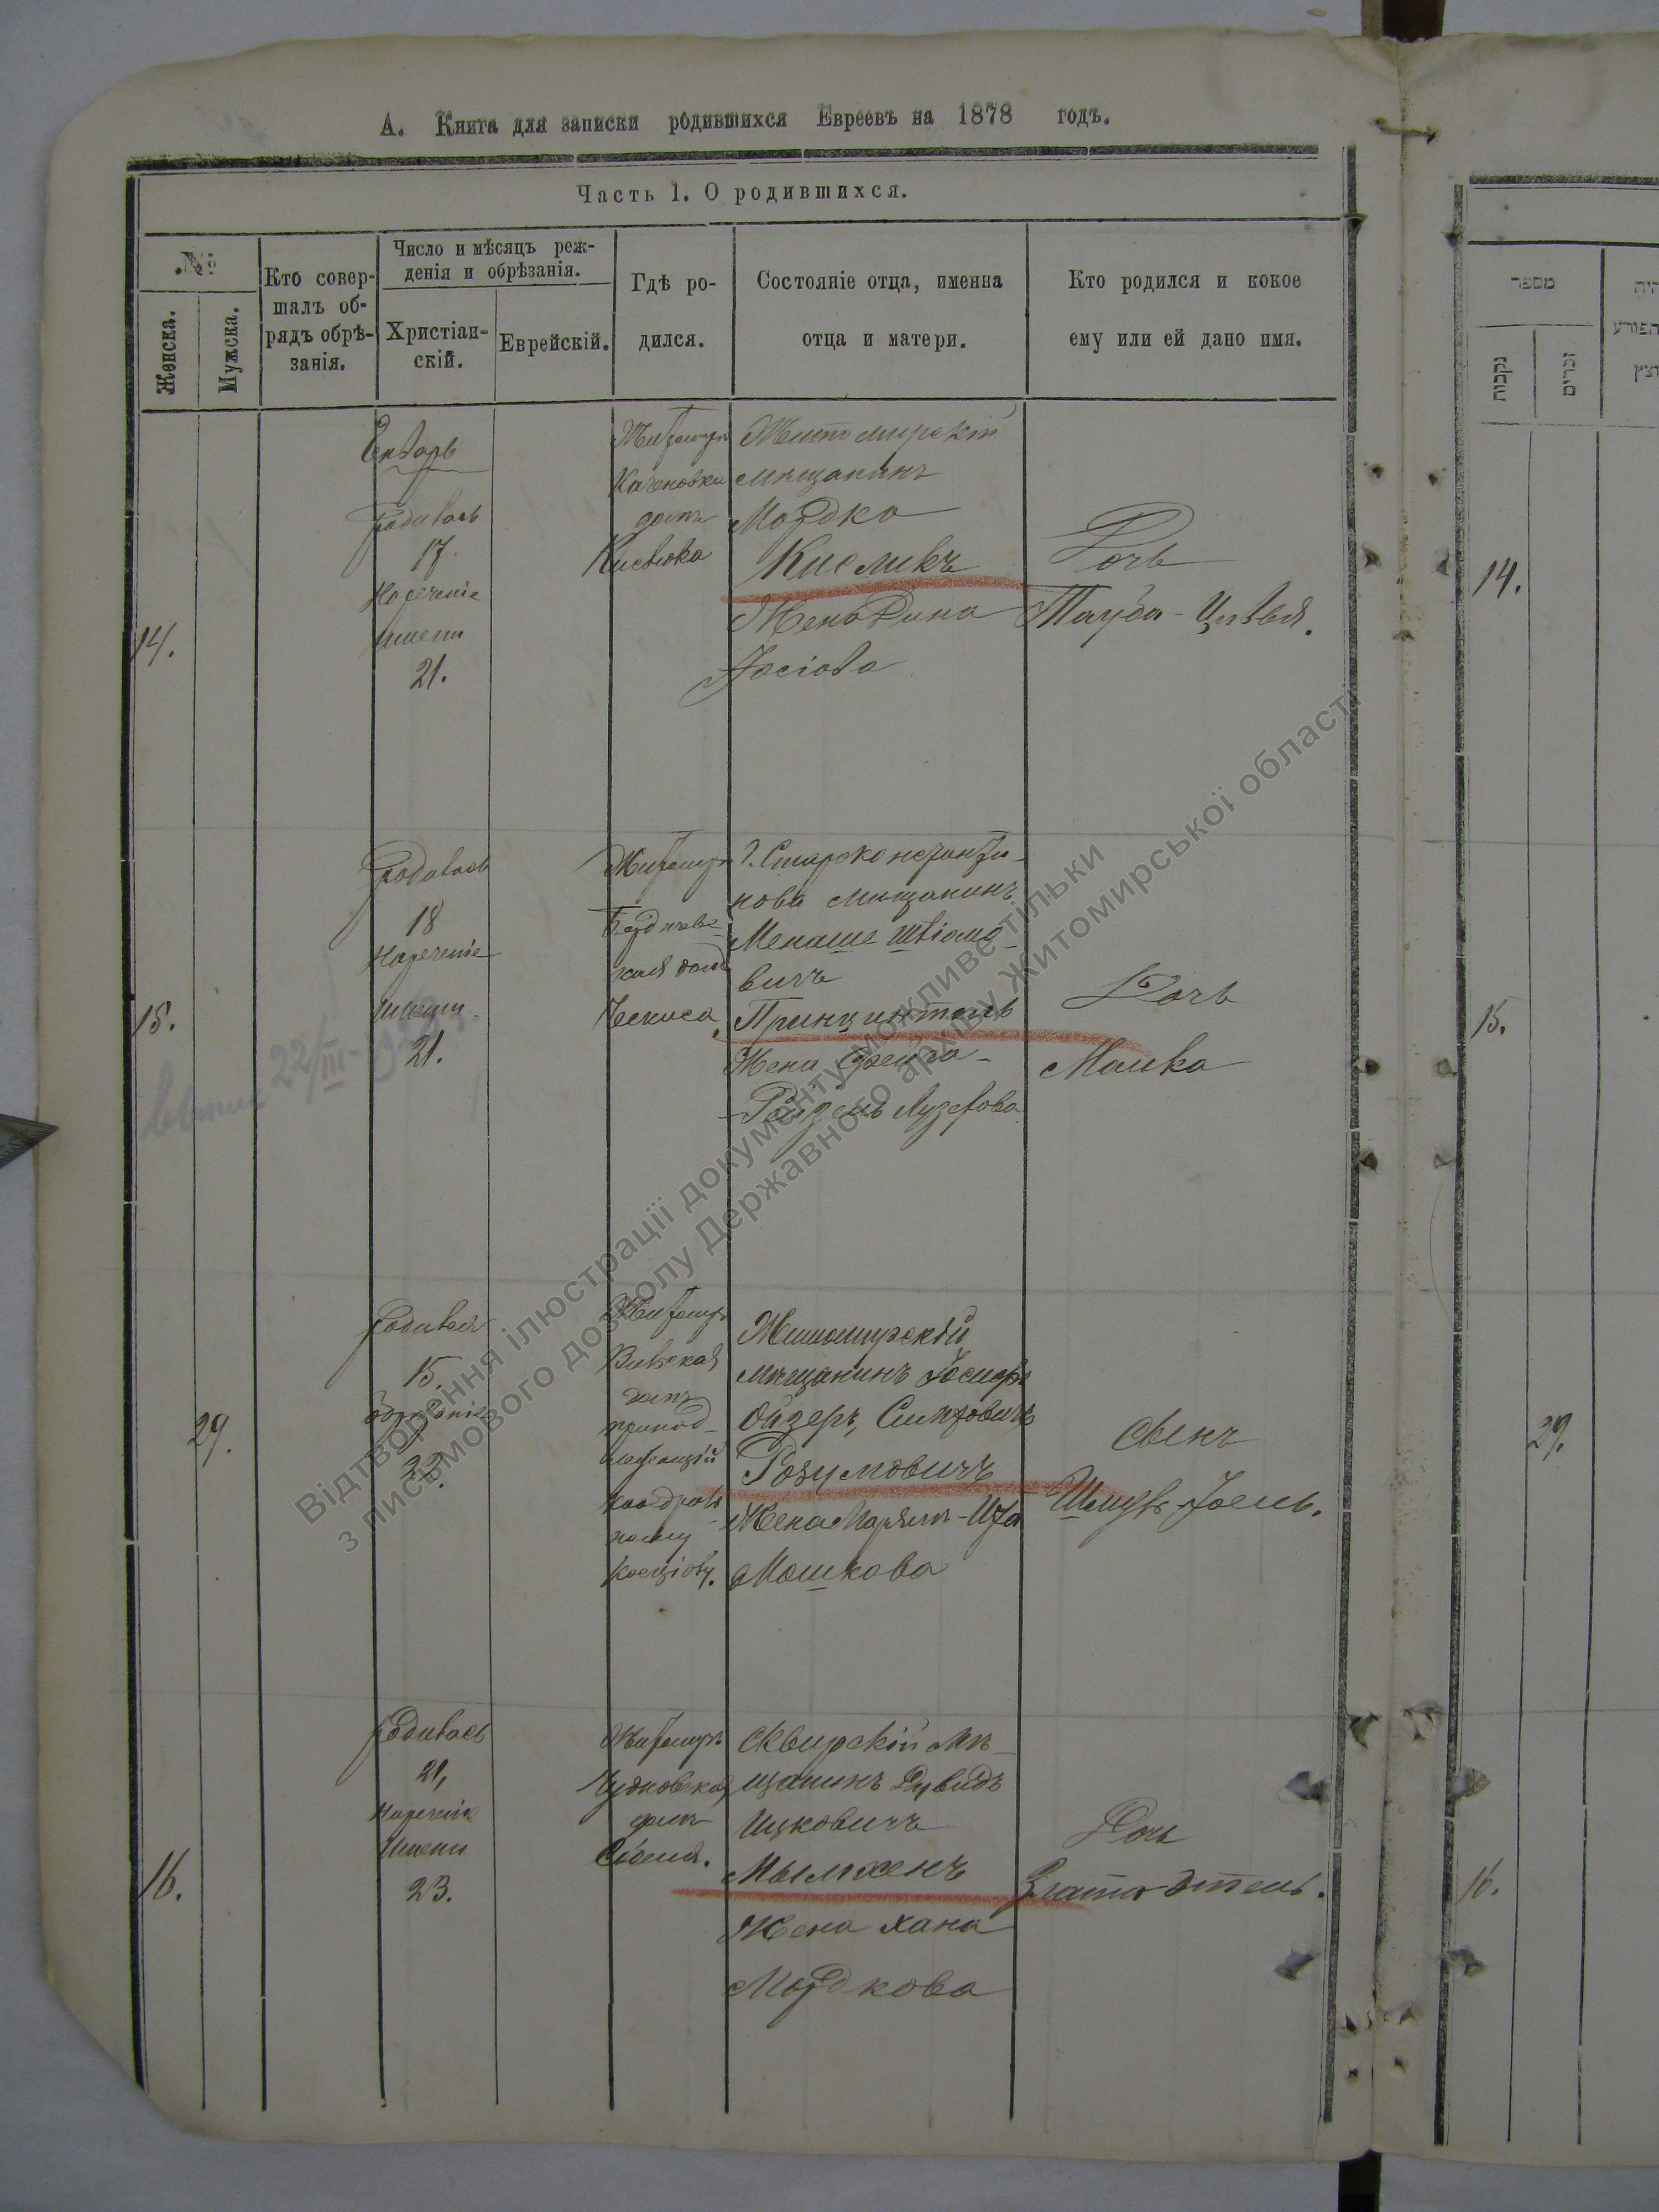 А. Книга для записки родившихся Евреевъ на 1878 годъ.
Часть 1. О родившихся.
№
Женска.
Мужска.
Кто совер-
шалъ об-
рядъ обрѣ-
занія.
Число и мѣсяцъ реж-
денія и обрѣзанія.
Христіан-
скій.
Еврейскій.
Гдѣ ро-
дился.
Состояніе отца, именна
отца и матери.
Кто родился и кокое
ему или ей дано имя.
14.
Январь
Родилась
17.
Нареченіе
Имени
21.
Житомиръ
домъ
Житомирскій
мѣщанинъ
Мордко
Кисликъ
Жена Дина
Іосіова
Дочь
Тауба-Цивья.
15.
Родилась
18
Нареченіе
Имени
21.
Житомиръ
Бердичевс-
кая домъ
г. Староконстанти-
нова мѣщанинъ
Менаше
вичъ
Принцинтель
Жена
Рейзель Лузерова
Дочь
Малка
29.
Родился
15.
Обрѣзаніе
22.
Житомиръ
домъ
принад-
лежащій
костіолу.
Житомирскій
мѣщанинъ Іосифъ
Ойзеръ,
Розумовичъ
Жена Марьямъ-Ита
Мошкова
Сынъ
Шмуль-Іоель.
16.
Родилась
21,
Нареченіе
Имени
23.
Житомиръ
Чудновская
домъ
Сквирскій мѣ-
щанинъ Дувидъ
Ицковичъ
Жена Хана
Мордкова
Дочь
Злата-Этель.
מספר
נקבות
זכרים
14.
15.
29.
16.
Відтворення ілюстрації документу можливе тільки
з письмового дозволу Державного архіву Житомирської області